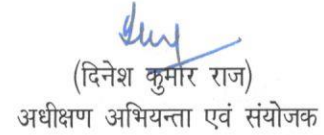 (दिनेश कुमार राज)
अधीक्षण अभियन्ता एवं संयोजक